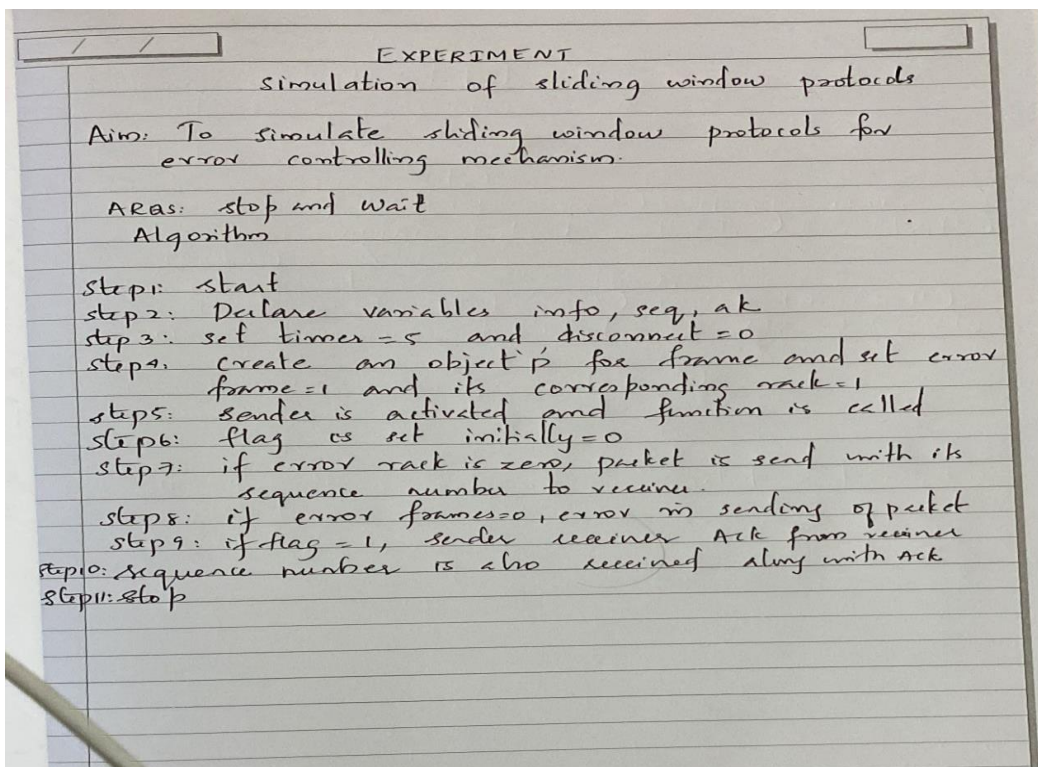 EXPERIMENT
simulation of sliding window protocols
Aim: To simulate sliding window protocols for
error controlling mechanism.
ARQs: stop and wait
Algorithm
step1: start
step2: Declare variables info, seq, ak
step3: set timer = 5 and disconnect = 0
step4: create an object 'p' for frame and set error
frame = 1 and its corresponding rack = 1
step5: sender is activated and function is called
step6: flag is set initially = 0
step7: if error rack is zero, packet is send with its
sequence number to receiver.
step8: if error frames=0, error in sending of packet
step9: if flag = 1, sender receives Ack from receiver
step10: sequence number is also received along with Ack
step11: stop